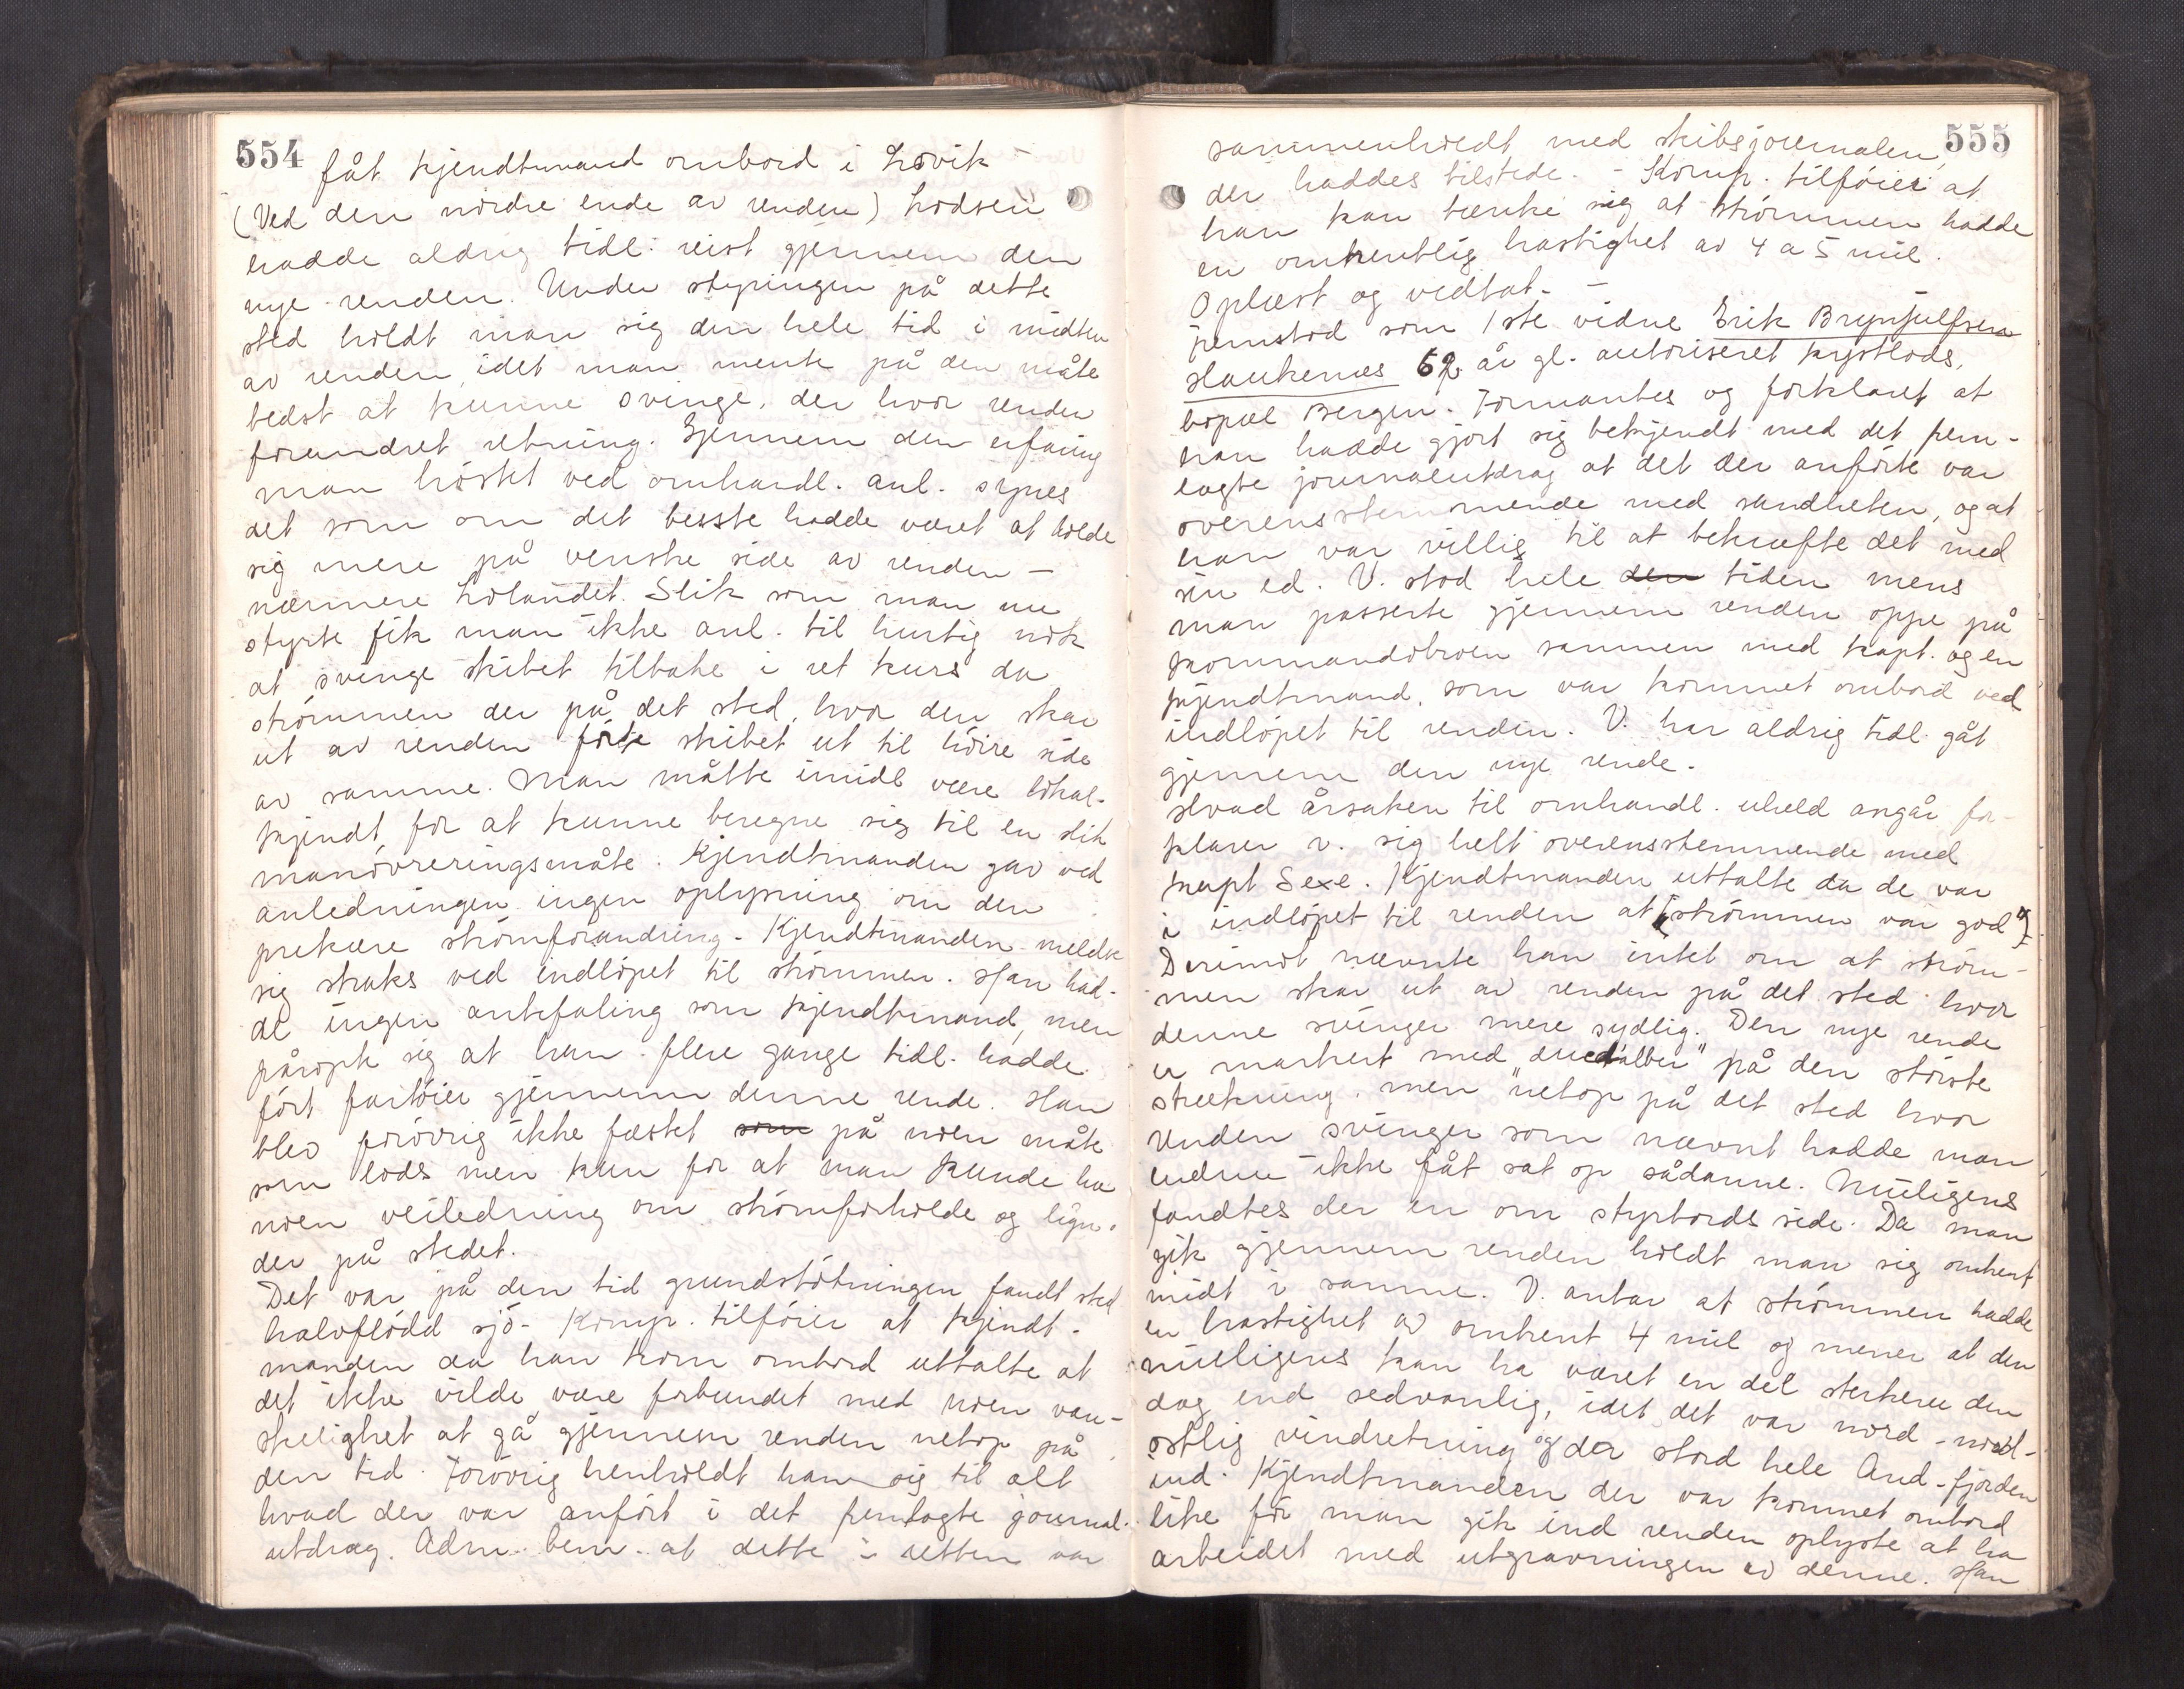 554
fåt kjendtmand ombord i Lovik -
(Ved den nordre ende av renden) Lodsen
hadde aldrig tidl. reist gjennem den
nye renden. Under styringen på dette
sted holdt man sig den hele tid i midten
av renden, idet man mente på den måte
bedst at kunne svinge, der hvor renden
forandret retning. Gjennem den erfaring
man høstet ved omhandl. anl. synes
det som om det besste hadde været at holde
sig mere på venstre side av renden -
nærmere Lolandet. Slik som man nu
styrte fik man ikke anl. til hurtig nok
at svinge skibet tilbake i ret kurs da
strømmen der på det sted, hvor den skar
ut av renden førte skibet ut til høire side
av samme. Man måtte imidl være lokal-
kjendt for at kunne beregne sig til en slik
manøvreringsmåte. Kjendtmanden gav ved
anledningen ingen oplysning om den
prekære strømforandring. Kjendtmanden meldte
sig straks ved indløpet til strømmen. Han had-
de ingen anbefaling som kjendtmand, men
påropte sig at han flere gange tidl. hadde
ført fartøier gjennem denne rende. Han
blev forøvrig ikke fæstet som på noen måte
som lods men kun for at man kunde ha
noen veiledning om strømforholde og lign.
der på stedet.
Det var på den tid grundstøtningen fandt sted
halvflødd sjø. Komp. tilføier at kjendt-
manden da han kom ombord uttalte at
det ikke vilde være forbundet med noen van-
skelighet at gå gjennem renden netop på
den tid. Forøvrig henholdt han sig til alt
hvad der var anført i det fremlagte journal-
utdrag. Adm. bem. at dette i retten var
555
sammenholdt med skibsjournalen,
der haddes tilstede. - Komp. tilføier at
han kan tænke sig at strømmen hadde
en omtrentlig hastighet av 4 a 5 mil.
Oplæst og vedtat. -
Fremstod som 1ste vidne Erik Brynjulfsen
Haukenæs 62 år gl. autoriseret kystlods,
bopæl Bergen. Formantes og forklaret at
han hadde gjort sig bekjendt med det frem-
lagte journalutdrag at det der anførte var
overensstemmende med sandheten, og at
han var villig til at bekræfte det med
sin ed. V. stod hele den tiden mens
man passerte gjennem renden oppe på
kommandobroen sammen med kapt. og en
kjendtmand, som var kommet ombord ved
indløpet til renden. V. har aldrig tidl. gåt
gjennem den nye rende.
Hvad årsaken til omhandl. uheld angår for-
klarer v. sig helt overensstemmende med
kapt Sexe. Kjendtmanden uttalte da de var
i indløpet til renden at "strømmen var god"
Derimot nævnte han intet om at strøm-
men skar ut av renden på det sted hvor
denne svinger mere sydlig. Den nye rende
er markert med "ducdalber" på den største
strekning, men netop på det sted hvor
renden svinger som nævnt hadde man
endnu ikke fåt sat op sådanne. Muligens
fandtes der en om styrbords side. Da man
gik gjennem renden holdt man sig omtrent
midt i samme. V. antar at strømmen hadde
en hastighet av omtrent 4 mil og mener at den
muligens kan ha været en del sterkere den
dag end sedvanlig, idet det var nord-nord-
østlig vindretning og der stod hele And-fjorden
ind. Kjendtmanden der var kommet ombord
like før man gik ind renden oplyste at ha
arbeidet med utgravningen av denne. Han